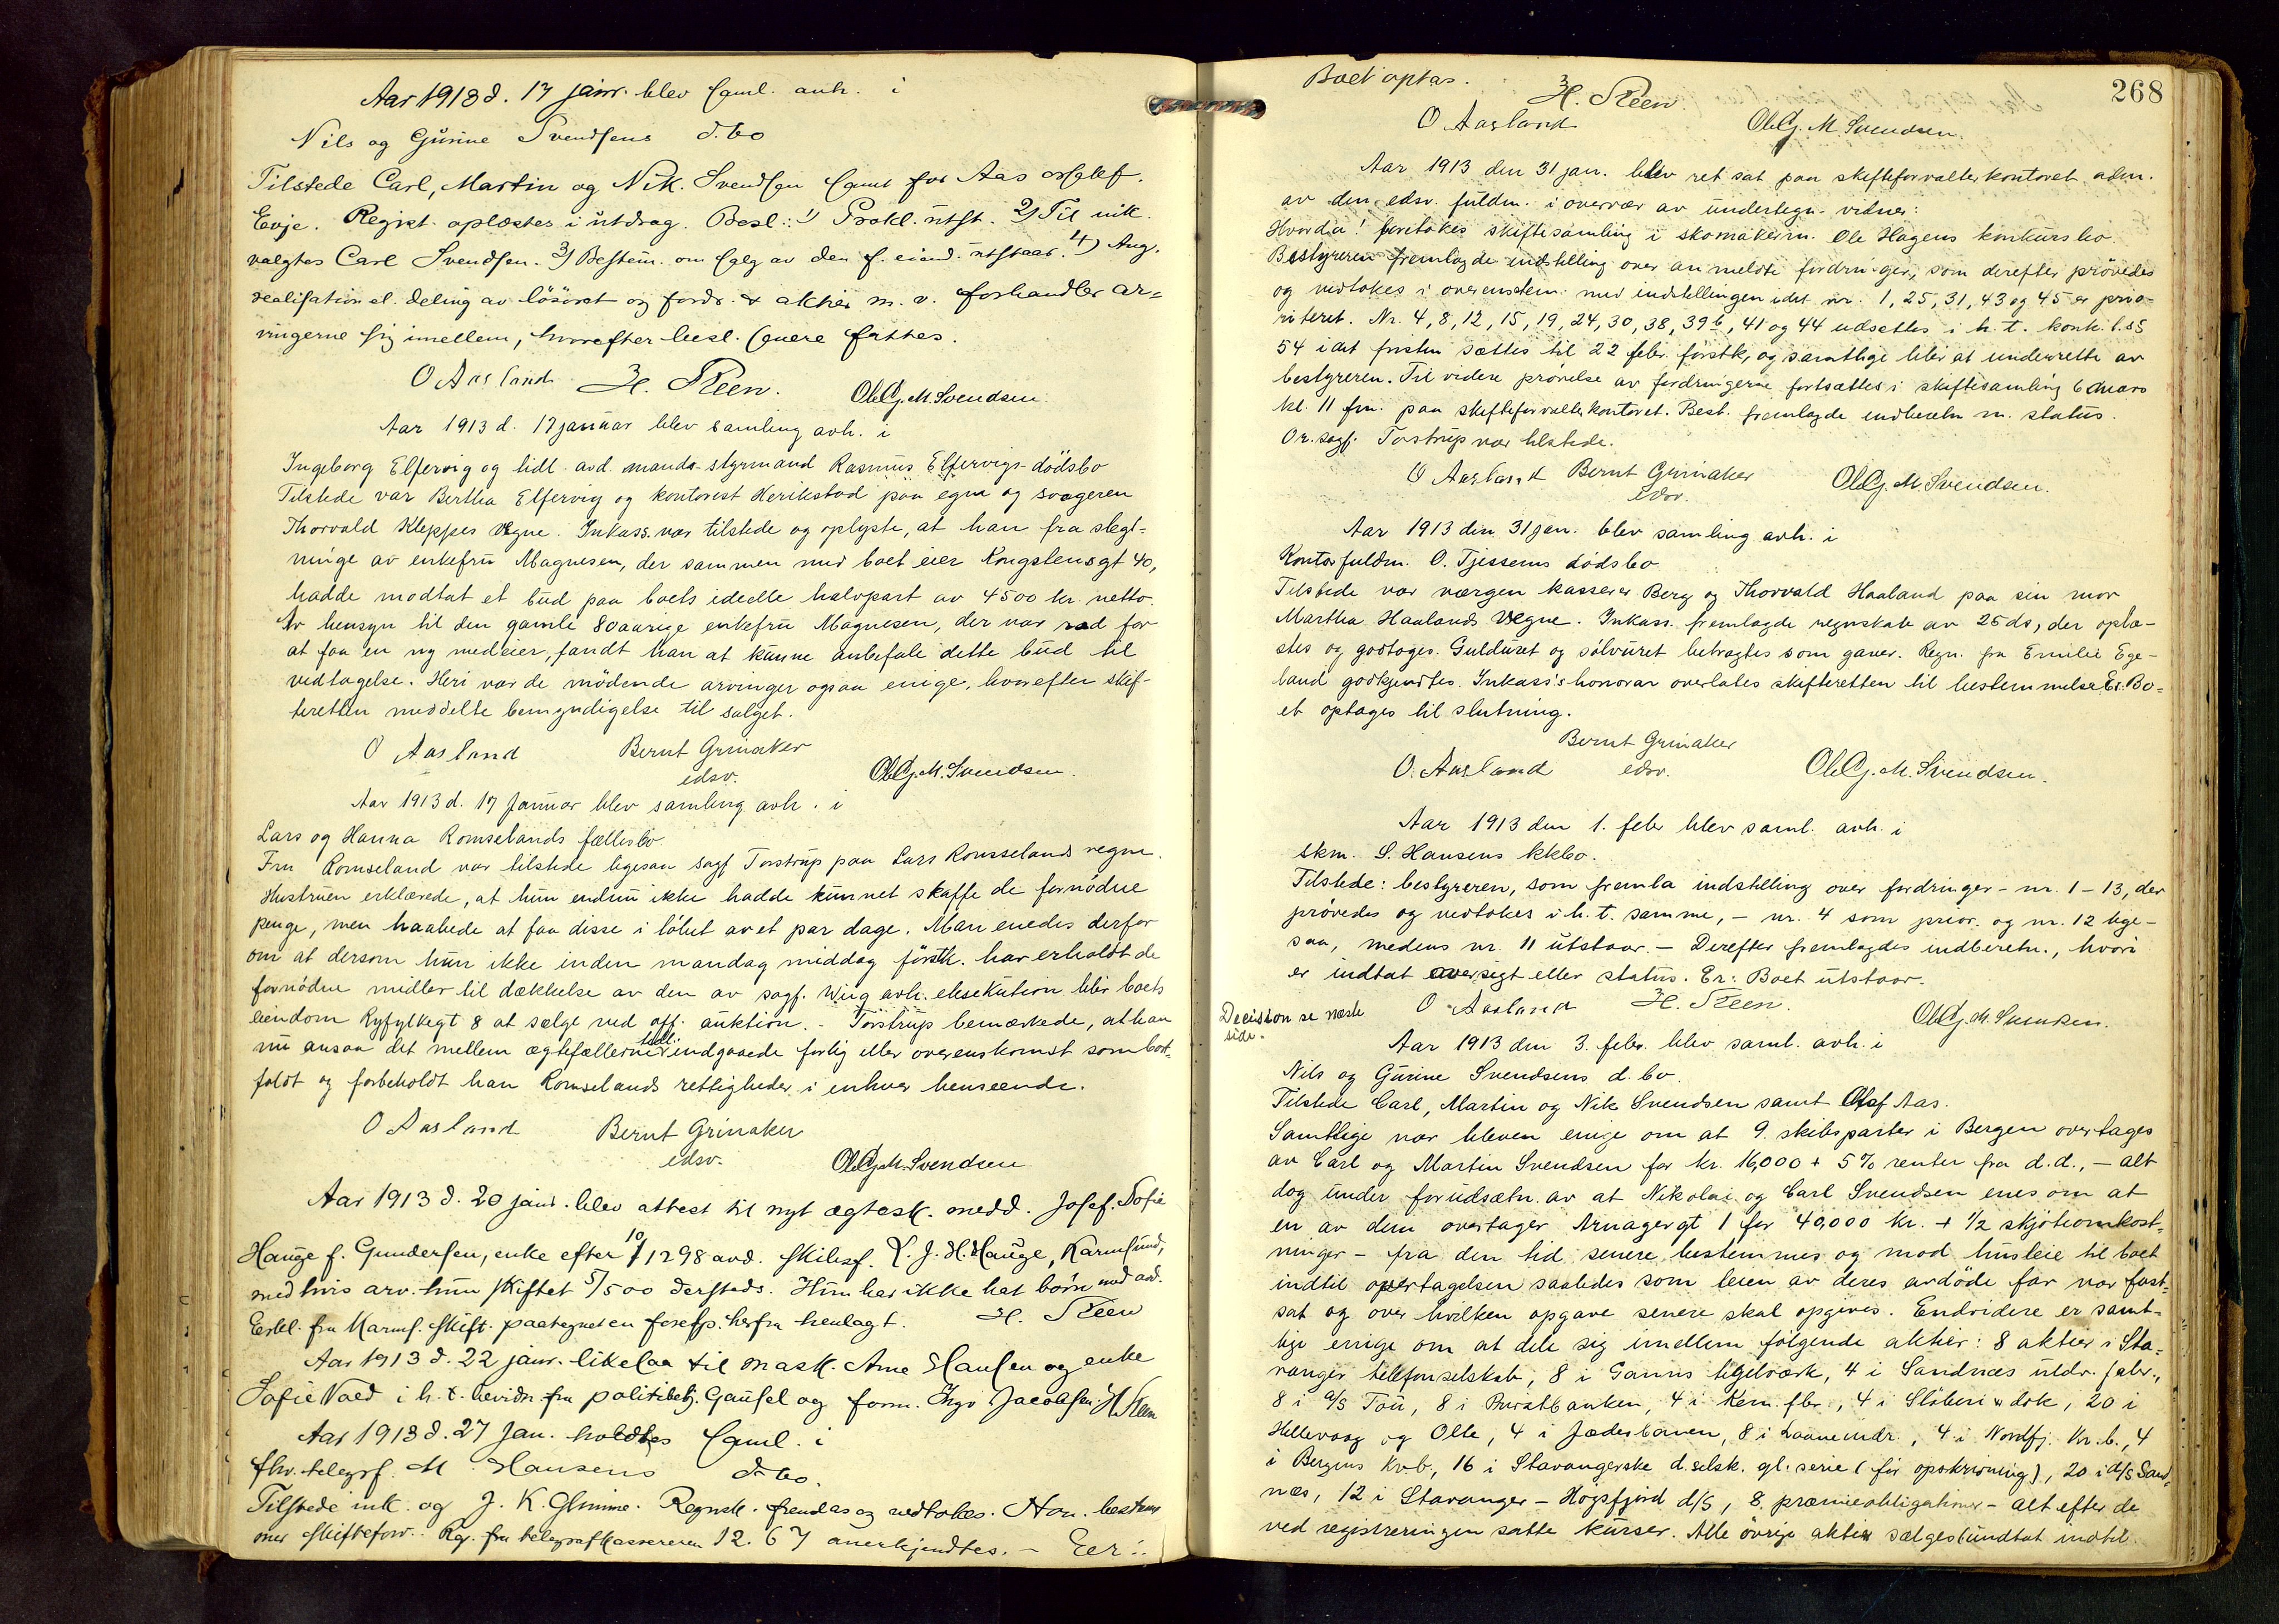 Aar 1913 d. 17 janr. blev saml. avh. i
Nils og Gurine Svendsens d.bo
Tilstede Carl, Martin og Nik. Svendsen samt for Aas
Evje. Regist. oplæstes i utdrag. Besl.: 1) Prokl. utst. 2) Til ink.
valgtes Carl Svendsen. 3) Bestem. om salg av den f. eiend. utstaar. 4) Ang.
realisation el. deling av lösöret og fordr. & aktier m. v. forhandler ar-
vingerne sig imellem, hvorefter besl. senere fattes.
O Aasland H. Steen. Ole Gj. M. Svendsen
Aar 1913 d. 17 januar blev samling avh. i
Ingeborg Elfervig og tidl. avd. mands styrmand Rasmus Elfervigs dödsbo
Tilstede var Bertha Elfervig og kontorist Herikstad paa egne og svogeren
Thorvald Kleppes vegne. Inkass. var tilstede og oplyste, at han fra slegt-
ninge av enkefru Magnesen, der sammen med boet eier Kongstensgt 40,
hadde modtat et bud paa boets ideelle halvpart av 4500 kr. netto.
Av hensyn til den gamle 80 aarige enkefru Magnesen, der var ræd for
at faa en ny medeier, fandt han at kunne anbefale dette bud til
vedtagelse. Heri var de mödende arvinger ogsaa enige, hvorefter skif-
teretten meddelte bemyndigelse til salget.
O Aasland Bernt Grinaker Ole Gj. M. Svendsen.
edsv.
Aar 1913 d. 17 Januar blev samling avh. i
Lars og Hanna Romselands fællesbo
Fru Romseland var tilstede ligesaa sagf Torstrup paa Lars Romselands vegne.
Hustruen erklærede, at hun endnu ikke hadde kunnet skaffe de fornödne
penge, men haabede at faa disse i löbet av et par dage. Man enedes derfor
om at dersom hun ikke inden mandag middag förstk. har erholdt de
fornödne midler til dækkelse av den av sagf. Wiig avh. eksekution blir boets
eiendom Ryfylkegt 8 at sælge ved off. auktion. - Torstrup bemærkede, at han
nu ansaa det mellem ægtefællerne tidl. indgaaede forlig eller overenskomst som bort-
faldt og forbeholdt han Romselands rettigheder i enhver henseende.
O Aasland Bernt Grinaker
edsv. Ole Gj. M. Svendsen
Aar 1913 d. 20 janr. blev attest til nyt ægtesk. medd. Josef. Sofie
Hauge f. Gundersen, enke efter 10/12 98 avd. skibsf. J. H. Hauge, Karmsund,
med hvis arv. hun skiftet 5/5 00 dersteds. Hun har ikke hat börn med avd.
Erkl. fra Karms. skift. paategnet en forespr. herfra henlagt. H. Steen
Aar 1913 d. 22 janr. likesaa til mask. Arne Hansen og enke
Sofie Naed i h. t. bevidn. fra politibetj. Gausel og form. Ingv Jacobsen. H Steen
Aar 1913 d. 27 Jan. holdtes saml. i
fhv. telegrf. M. Hansens d.bo.
Tilstede ink. og J. K. Glimme. Regnsk. fremlas og vedtokes. Hon. bestem
mes skifteforv.. Reg. fra telegrafkassereren 12.67 anerkjendtes. - Eer:
268
Boet optas. H. Steen.
O Aasland Ole Gj. M. Svendsen.
Aar 1913 den 31 jan. blev ret sat paa skifteforvalterkontoret adm.
av den edsv. fuldm. i overvær av undertegn. vidner:
Hvorda! foretokes skiftesamling i skomakerm. Ole Hagens konkursbo.
Bestyreren fremlagde indstilling over anmeldte fordringer, som derefter prövedes
og vedtokes i overenstem. med indstillingen idet nr. 1, 25, 31, 43 og 45 er prio-
riteret. Nr. 4, 8, 12, 15, 19, 24, 30, 38, 39 b, 41 og 44 udsettes i h. t. konk. l. §§
54 idet fristen sættes til 22 febr. förstk, og samtlige blir at underrette av
bestyreren. Til videre prövelse av fordringerne fortsættes i skiftesamling 6 mars
kl. 11 fm. paa skifteforvalterkontoret. Best. fremlagde indberetn m. status.
Or. sagf. Torstrup var tilstede.
O Aasland Bernt Grinaker Ole Gj. M. Svendsen.
edsv.
Aar 1913 den 31 jan. blev samling avh. i
Kontorfuldm. O. Tjessems dödsbo
Tilstede var værgen kasserer Berg og Thorvald Haaland paa sin mor
Martha Haalands vegne. Inkass. fremlagde regnskab av 25 ds, der oplæ-
stes og godtoges. Gulduret og sölvuret betragtes som gaver. Regn. fra Emilie Ege-
land godkjendtes. Inkass's honorar overlates skifteretten til bestemmelse. Er: Bo-
et optages til slutning.
Bernt Grinaker
O. Aasland edsv. Ole Gj. M. Svendsen.
Aar 1913 den 1. feb blev saml. avh. i
skm. S. Hansens kkbo.
Tilstede: bestyreren, som fremla indstilling over fordringer - nr. 1 - 13, der
prövedes og vedtokes i h. t. samme, - nr. 4 som prior. og nr. 12 lige-
saa, medens nr. 11 utstaar. - Derefter fremlagdes indberetn., hvori
er indtat oversigt eller status. Er: Boet utstaar.
Decision se næste
side.
O Aasland H. Steen. Ole Gj. M. Svendsen.
Aar 1913 den 3. febr. blev saml. avh. i
Nils og Gurine Svendsens d.bo.
Tilstede Carl, Martin og Nik Svendsen samt Olaf Aas.
Samtlige var bleven enige om at 9. skibsparter i Bergen overtages
av Carl og Martin Svendsen for kr. 16,000 + 5% renter fra d.d., - alt
dog under forudsætn. av at Nikolai og Carl Svendsen enes om at
en av dem overtager Arnagergt 1 for 40,000 kr. + 1/2 skjöteomkost-
ninger - fra den tid senere bestemmes og mod husleie til boet
indtil overtagelsen saaledes som leien av deres avdöde far var fast-
sat og over hvilken opgave senere skal opgives. Endvidere er samt-
lige enige om at dele sig imellem fölgende aktier: 8 aktier i Sta-
vanger telefonselskab, 8 i Ganns teglværk, 4 i Sandnæs uldv. fabr.,
8 i a/s Tou, 8 i Privatbanken, 4 i Kem. fbr., 4 i Stöberi & dok, 20 i
Hellevaag og Olle, 4 i Jæderbanen, 8 i Laaneindr., 4 i Nordfj. Kr.b., 4
i Bergens Kr.b., 16 i Stavangerske d.selsk. gl. serie (för opskrivning), 20 i d/s Sand-
næs, 12 i Stavanger - Högsfjord d/s, 8. præmieobligationer - alt efter de
ved registreringen satte kurser. Alle övrige aktier sælges undtat indtil